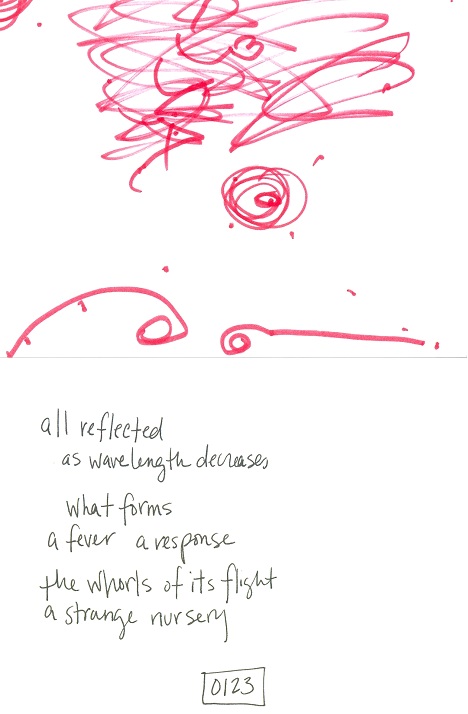 all reflected
as wavelength decreases
what forms
a fever a response
the whorls of its flight
a strange nursery
0123